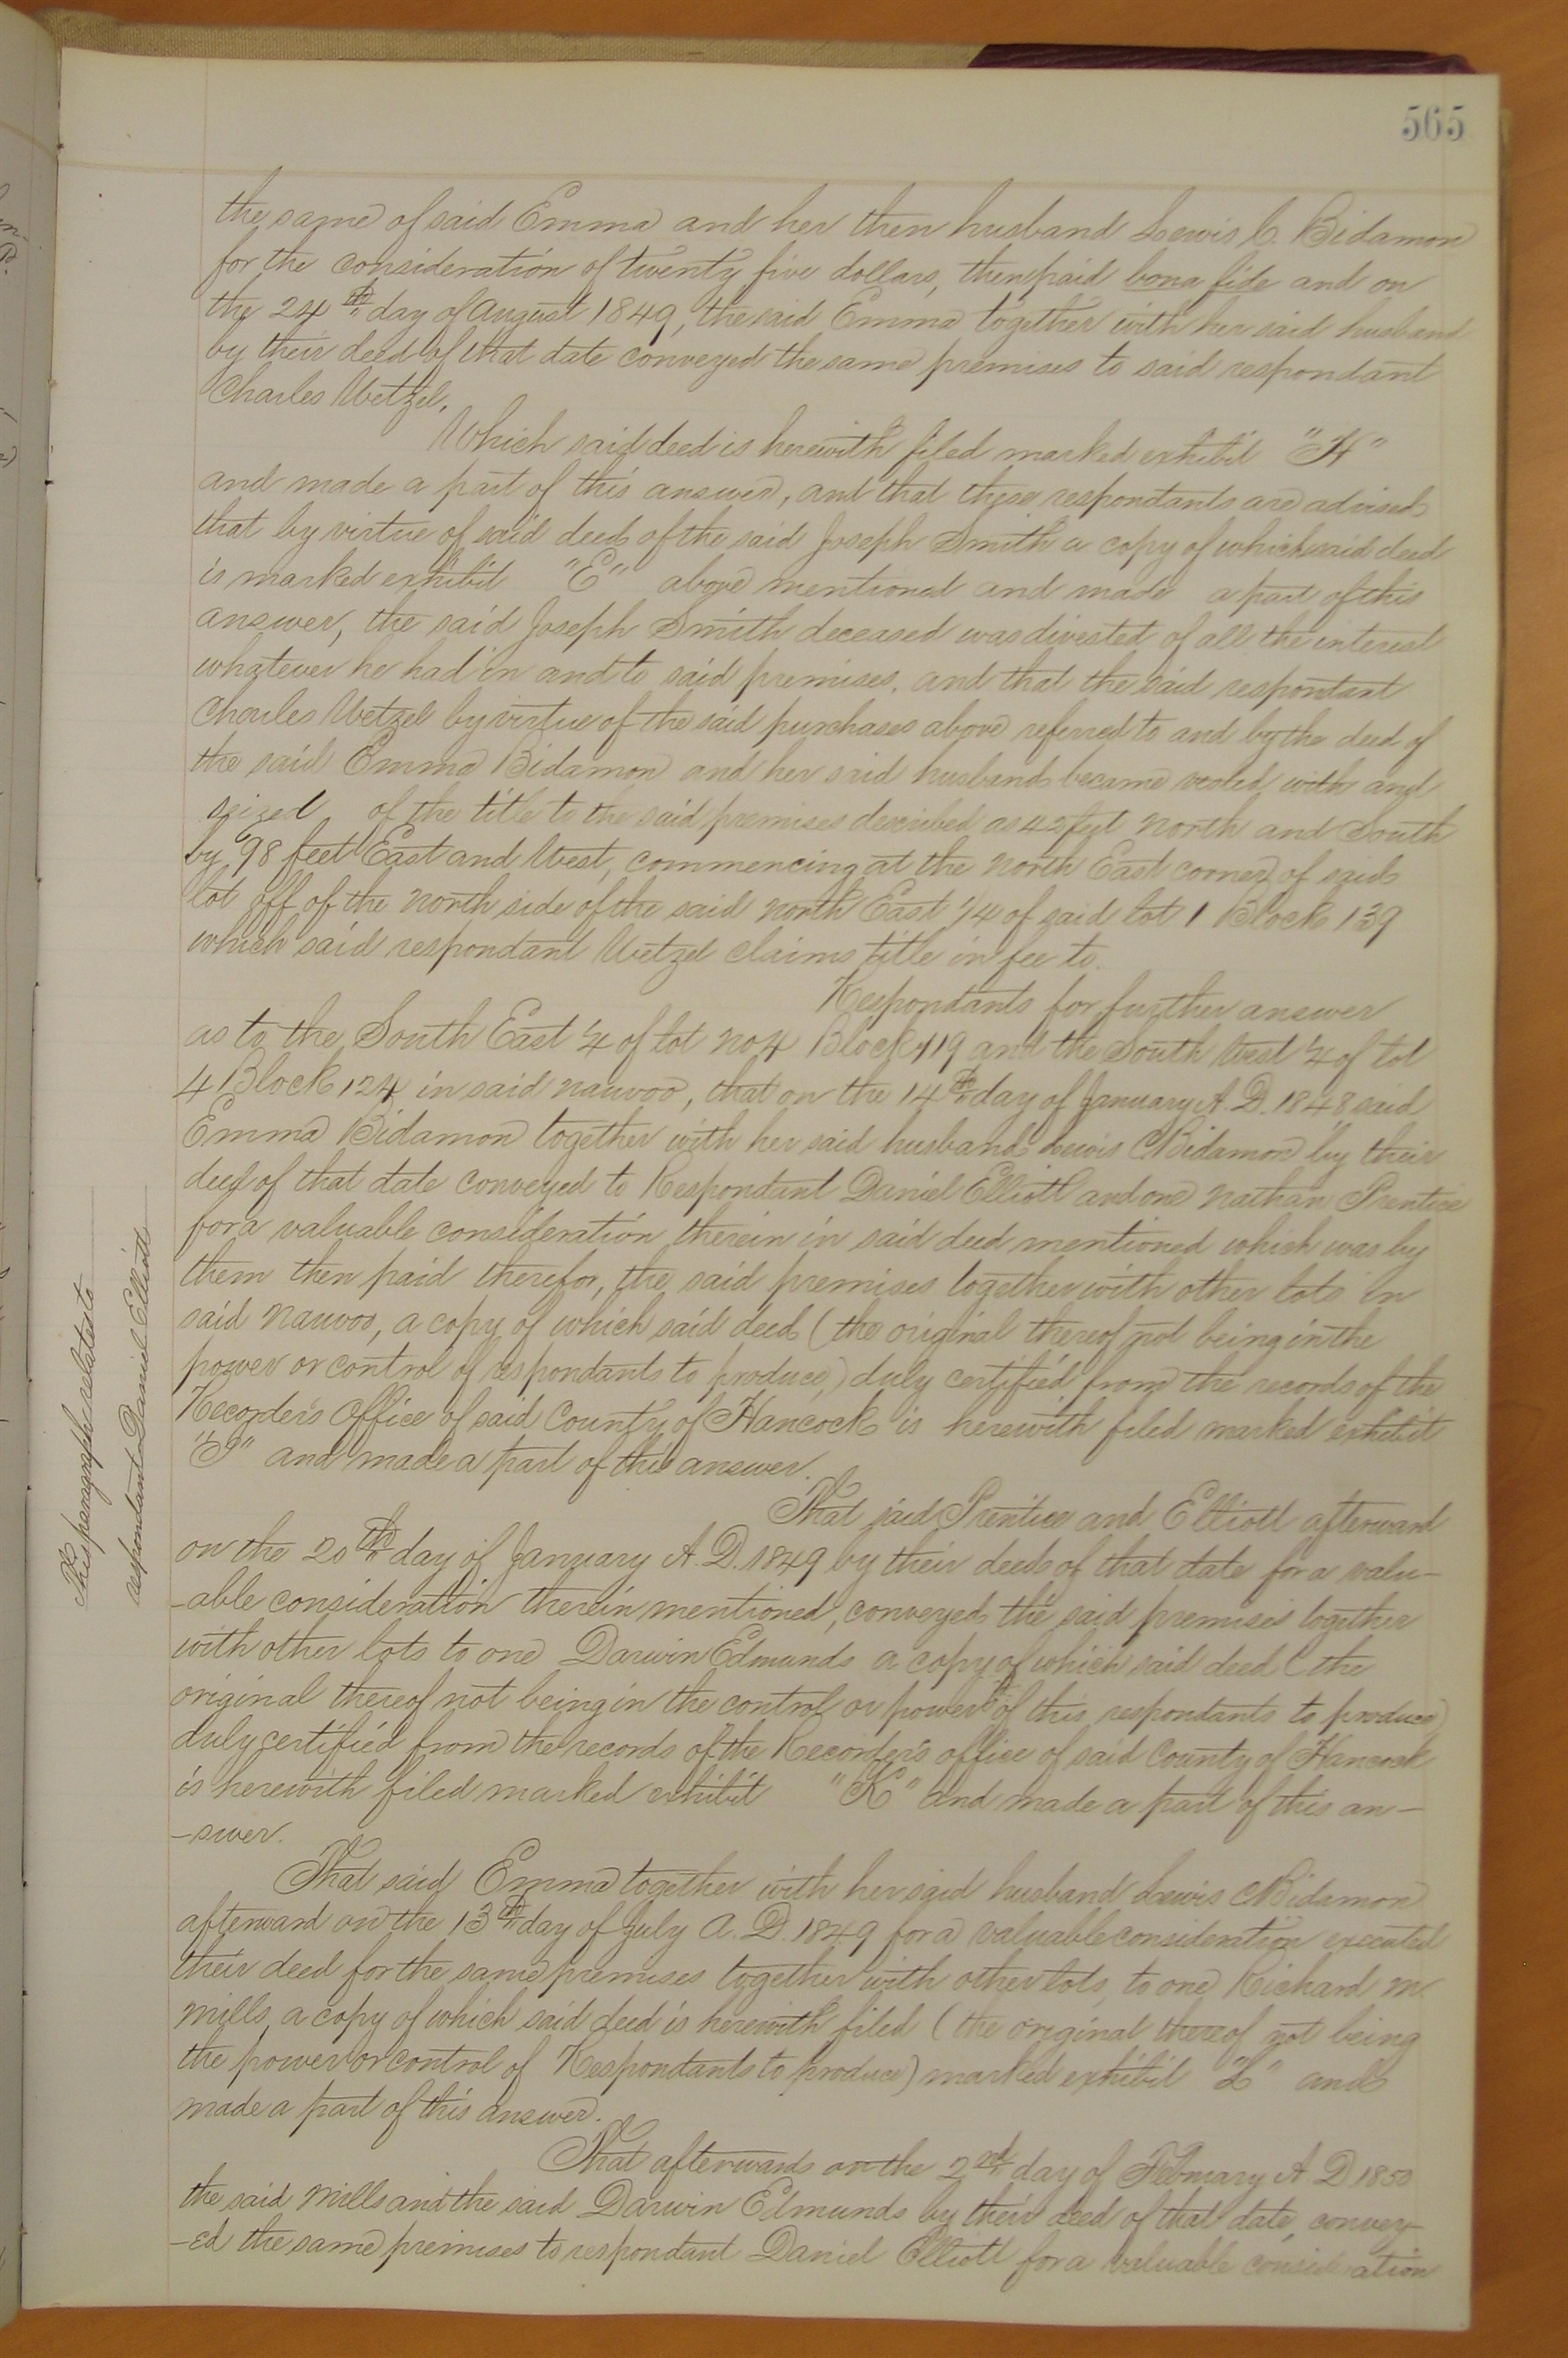 565
the same of said Emma and her then husband Lewis C. Bidamon
for the consideration of twenty five dollars, then paid bona fide and on
the 24th day of August 1849, the said Emma together with her said husband
by their deed of that date conveyed the same premises to said respondant
Charles Wetzel.
Which said deed is herewith filed marked exhibit "H"
and made a part of this answer, and that these respondants are advised
that by virtue of said deed of the said Joseph Smith a copy of which said deed
is marked exhibit "E" above mentioned and made a part of this
answer, the said Joseph Smith deceased was divested of all the interest
whatever he had in and to said premises. and that the said respontant
Charles Wetzel by virtue of the said purchases above referred to and by the deed of
the said Emma Bidamon and her said husband became vested with and
seized of the title to the said premises described as 42 feet North and South
by 98 feet East and West, commencing at the North East corner of said
lot off of the North side of the said North East 1/4 of said lot 1 Block 139
which said respondant Wetzel claims title in fee to.
Respondants for further answer
as to the South East 1/4 of lot No 4 Block 119 and the South West 1/4 of lot
4 Block 124 in said Nauvoo, that on the 14th day of January A. D. 1848 said
Emma Bidamon together with her said husband Lewis C Bidamon by their
deed of that date conveyed to Respondant Daniel Elliott and one Nathan Prentice
for a valuable consideration therein in said deed mentioned which was by
them then paid therefor, the said premises together with other lots in
said Nauvoo, a copy of which said deed (the original thereof not being in the
power or control of respondants to produce,) duly certified from the records of the
Recorder's Office of said County of Hancock is herewith filed marked exhibit
"I" and made a part of this answer.
That said Prentice and Elliott afterward
on the 20th day of January A. D. 1849 by their deed of that date for a valu-
-able consideration therein mentioned, conveyed the said premises together
with other lots to one Darwin Edmunds a copy of which said deed (the
original thereof not being in the control or power of this respondants to produce)
duly certified from the records of the Recorder's office of said County of Hancock
is herewith filed marked exhibit "K" and made a part of this an-
-swer.
That said Emma together with her said husband Lewis C Bidamon
afterward on the 13th day of July A. D. 1849 for a valuable consideration executed
their deed for the same premises together with other lots, to one Richard M
Mills, a copy of which said deed is herewith filed (the original thereof not being
the power or control of Respondants to produce) marked exhibit "L" and
made a part of this answer.
That afterwards on the 2nd day of February A D 1850
the said Mills and the said Darwin Edmunds by their deed of that date, convey-
-ed the same premises to respondant Daniel Elliott for a valuable consideration
This paragraph relates to
respondant Daniel Elliott